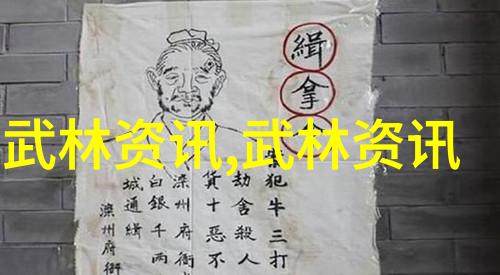 武林资讯,武林资讯
緝拿
犯牛三打
劫舍殺人
貨十惡不
滦州府衙
白銀千兩
城通緝
滦州府衙